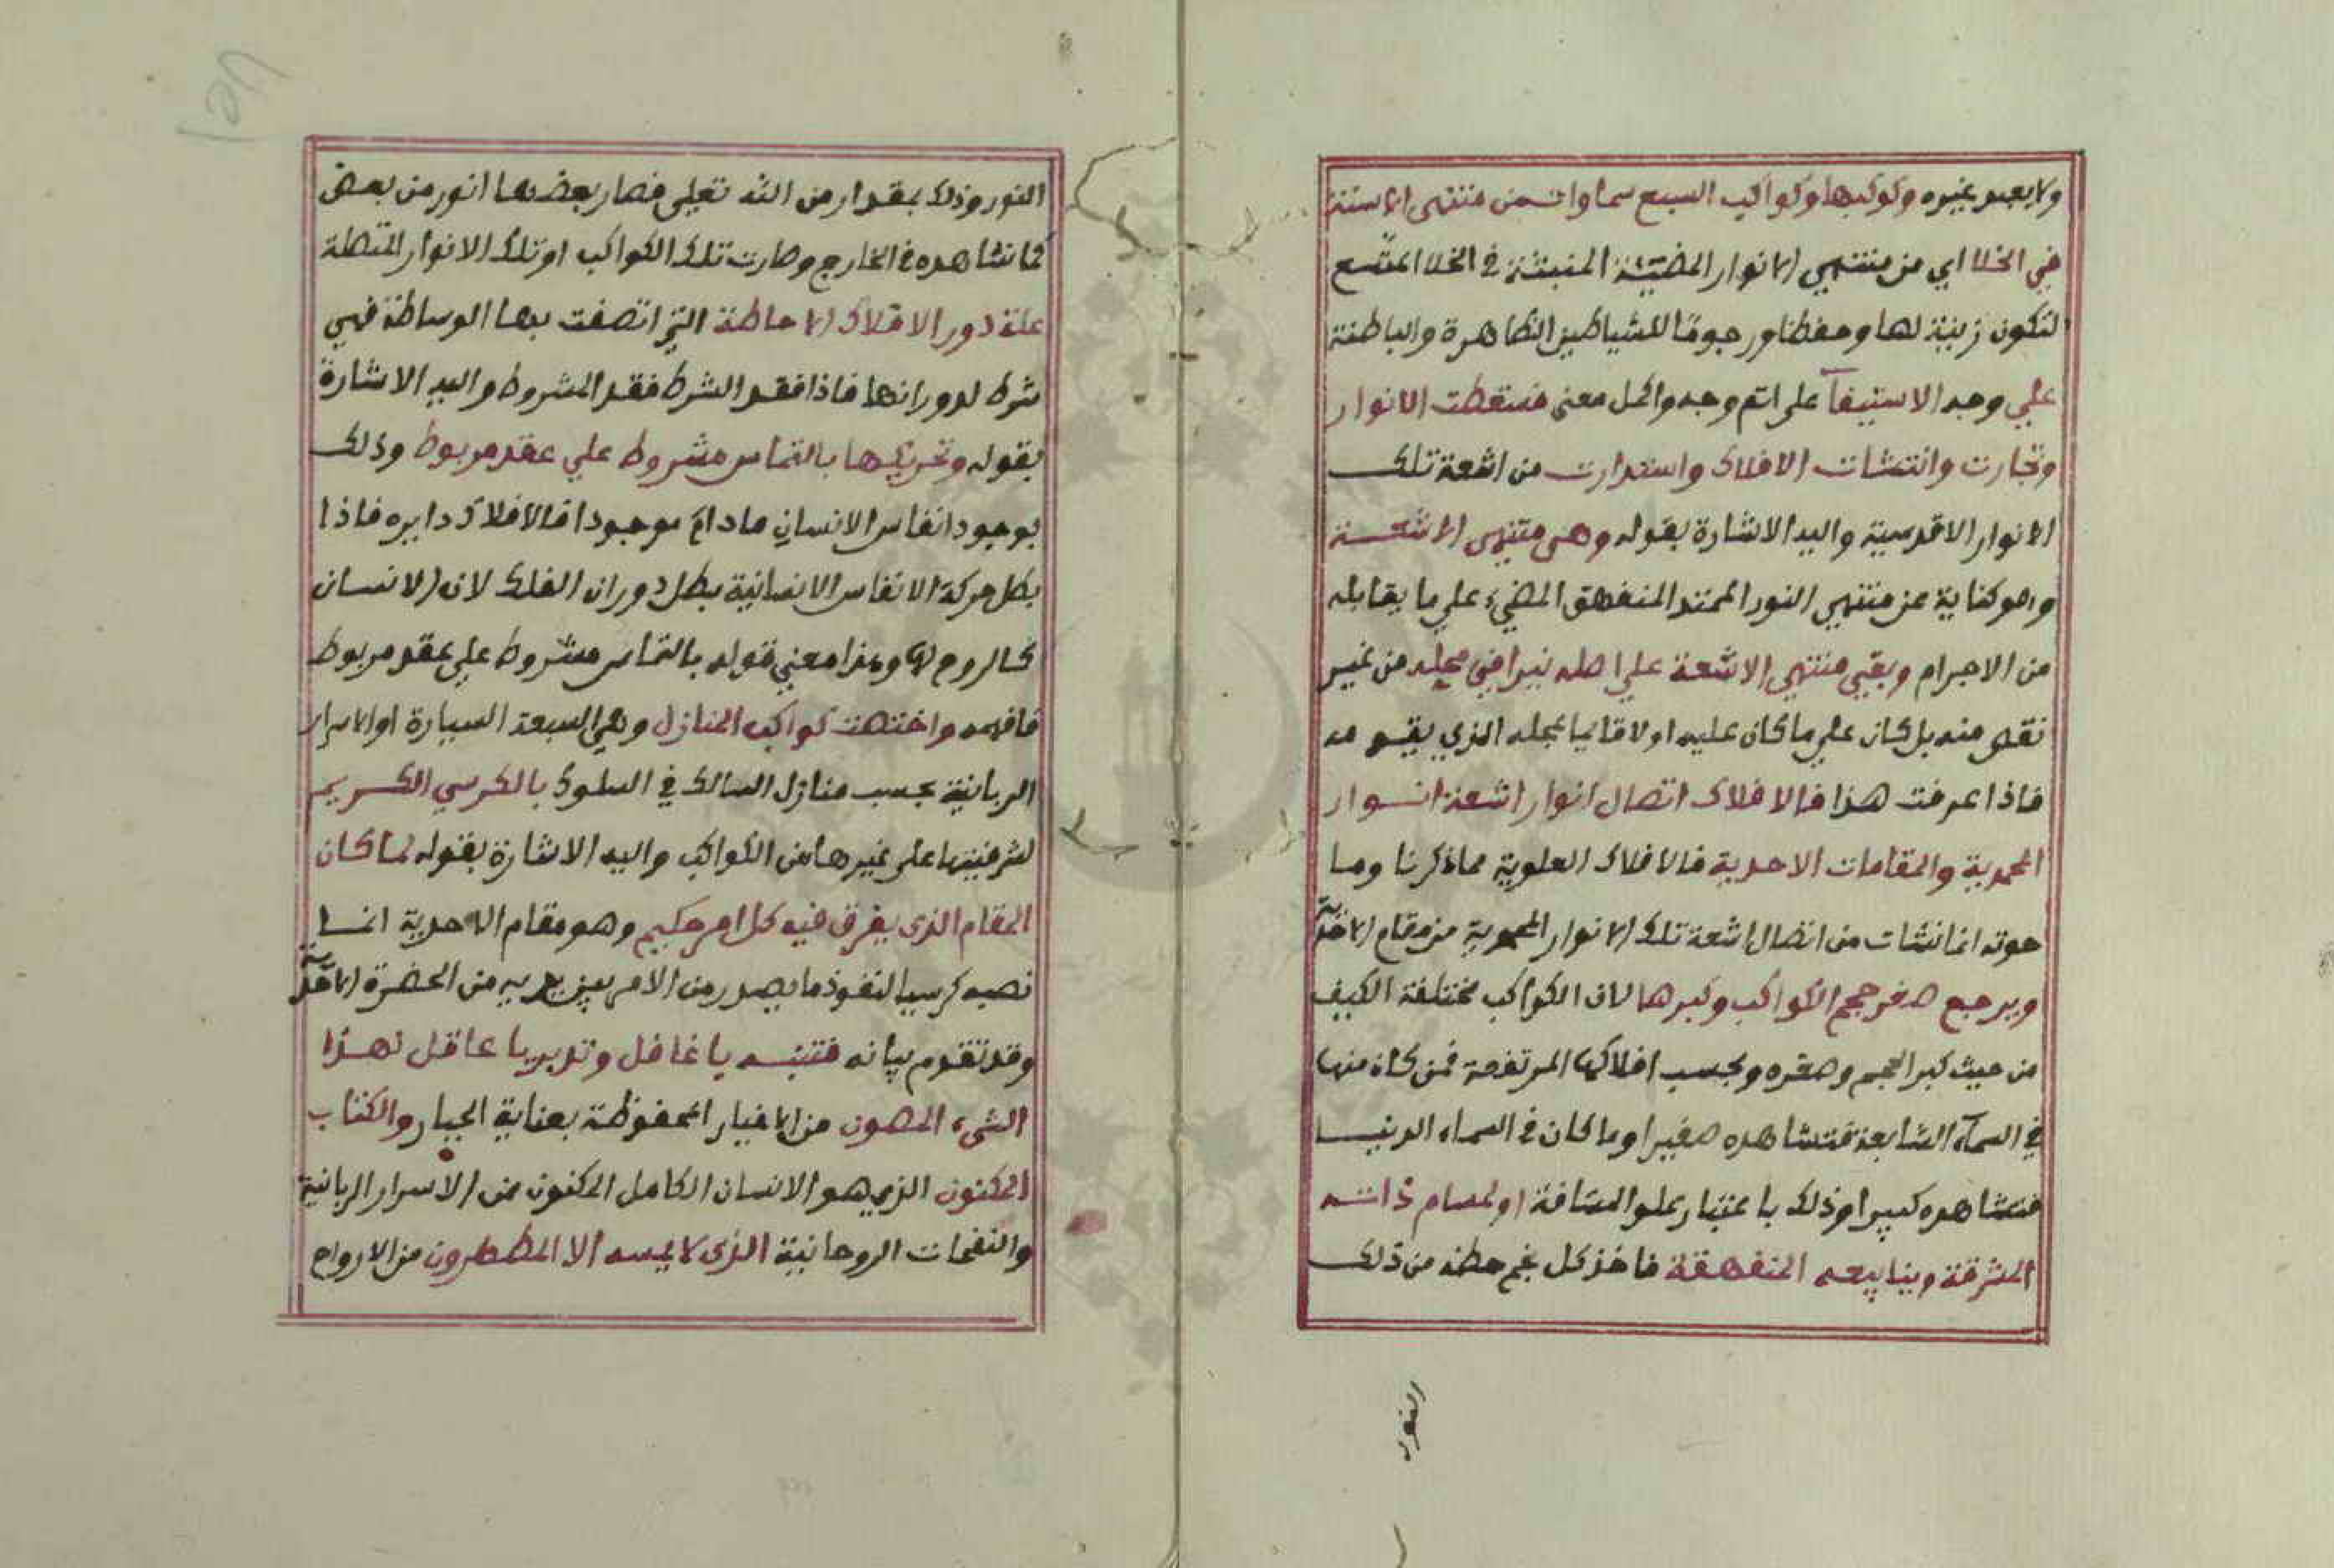 ولا يعبد غيره وكوكبها وكواكب السبع سماوات من منتهى الاستنة
في الخلا اي من منتهي الانوار المضيئة المنبثة في الخلا المتسع
لتكون زينة لها وحفظا ورجوما للشياطين الظاهرة والباطنة
علي وجه الاستيفآ على اتم وجه واكمل معنى فسقطت الانوار
وتجارت وانتشات الافلاك واستدارت من اشعة تلك
الانوار الاقدسية واليه الاشارة بقوله وهى منتهى الاشعة
وهو كناية عن منتهي النور الممتد المنفهق المضيء علي ما يقابله
من الاجرام وبقي منتهي الاشعة علي اصله نيرا في محله من غير
نقص منه بل كان علي ما كان عليه اولا قايما بمحله الذي يقيمه
فاذا عرفت هذا فالافلاك اتصال انوار اشعة انوار
المحمدية والمقامات الاحدية فالافلاك العلوية مما ذكرنا وما
حوته انما نشات من اتصال اشعة تلك الانوار المحمدية من مقام الاحدية
ويرجع صغر حجم الكواكب وكبرها لان الكواكب مختلفة الكيف
من حيث كبر الحجم وصغره وبحسب افلاكها المرتفعة فمن كان منها
في السمآء السابعة فتشاهده صغيرا وما كان في السماء الدنيا
فتشاهده كبيرا وذلك باعتبار علو المسافة او لمسام ذاته
المشرقة وينابيعه المنفهقة فاخذ كل نجم حظه من ذلك
النور
النور وذلك بمقدار من الله تعلى فصار بعضها انور من بعض
كما نشاهده في الخارج وصارت تلك الكواكب او تلك الانوار المتصلة
علة دور الافلاك الاحاطة التي اتصفت بها الوساطة فهي
شرط لدورانها فاذا فقد الشرط فقد المشروط واليه الاشارة
بقوله وتحريكها بالتماس مشروط علي عقد مربوط وذلك
بوجود انفاس الانسان ما دام موجودا فالافلاك دايره فاذا
بطل حركة الانفاس الانسانية بطل دوران الفلك لان الانسان
كالروح لها وهذا معني قوله بالتماس مشروط علي عقد مربوط
فافهمه واختصت كواكب المنازل وهي السبعة السيارة او الاسرار
الربانية بحسب منازل السالك في السلوك بالكرسي الكريم
لشرفيتها على غيرها من الكواكب واليه الاشارة بقوله لما كان
المقام الذى يفرق فيه كل امر حكيم وهو مقام الاحدية انما
نصبه كرسيا لنفوذ ما يصدر من الامر بين يديه من الحضرة الاحدية
وقد تقدم بيانه فتنبه يا غافل وتدبر يا عاقل لهذا
الشيء المصون من الاغيار المحفوظة بعناية الجبار والكتاب
المكنون الذي هو الانسان الكامل المكنون من الاسرار الربانية
والنفحات الروحانية الذى لا يمسه الا المطهرون من الارواح